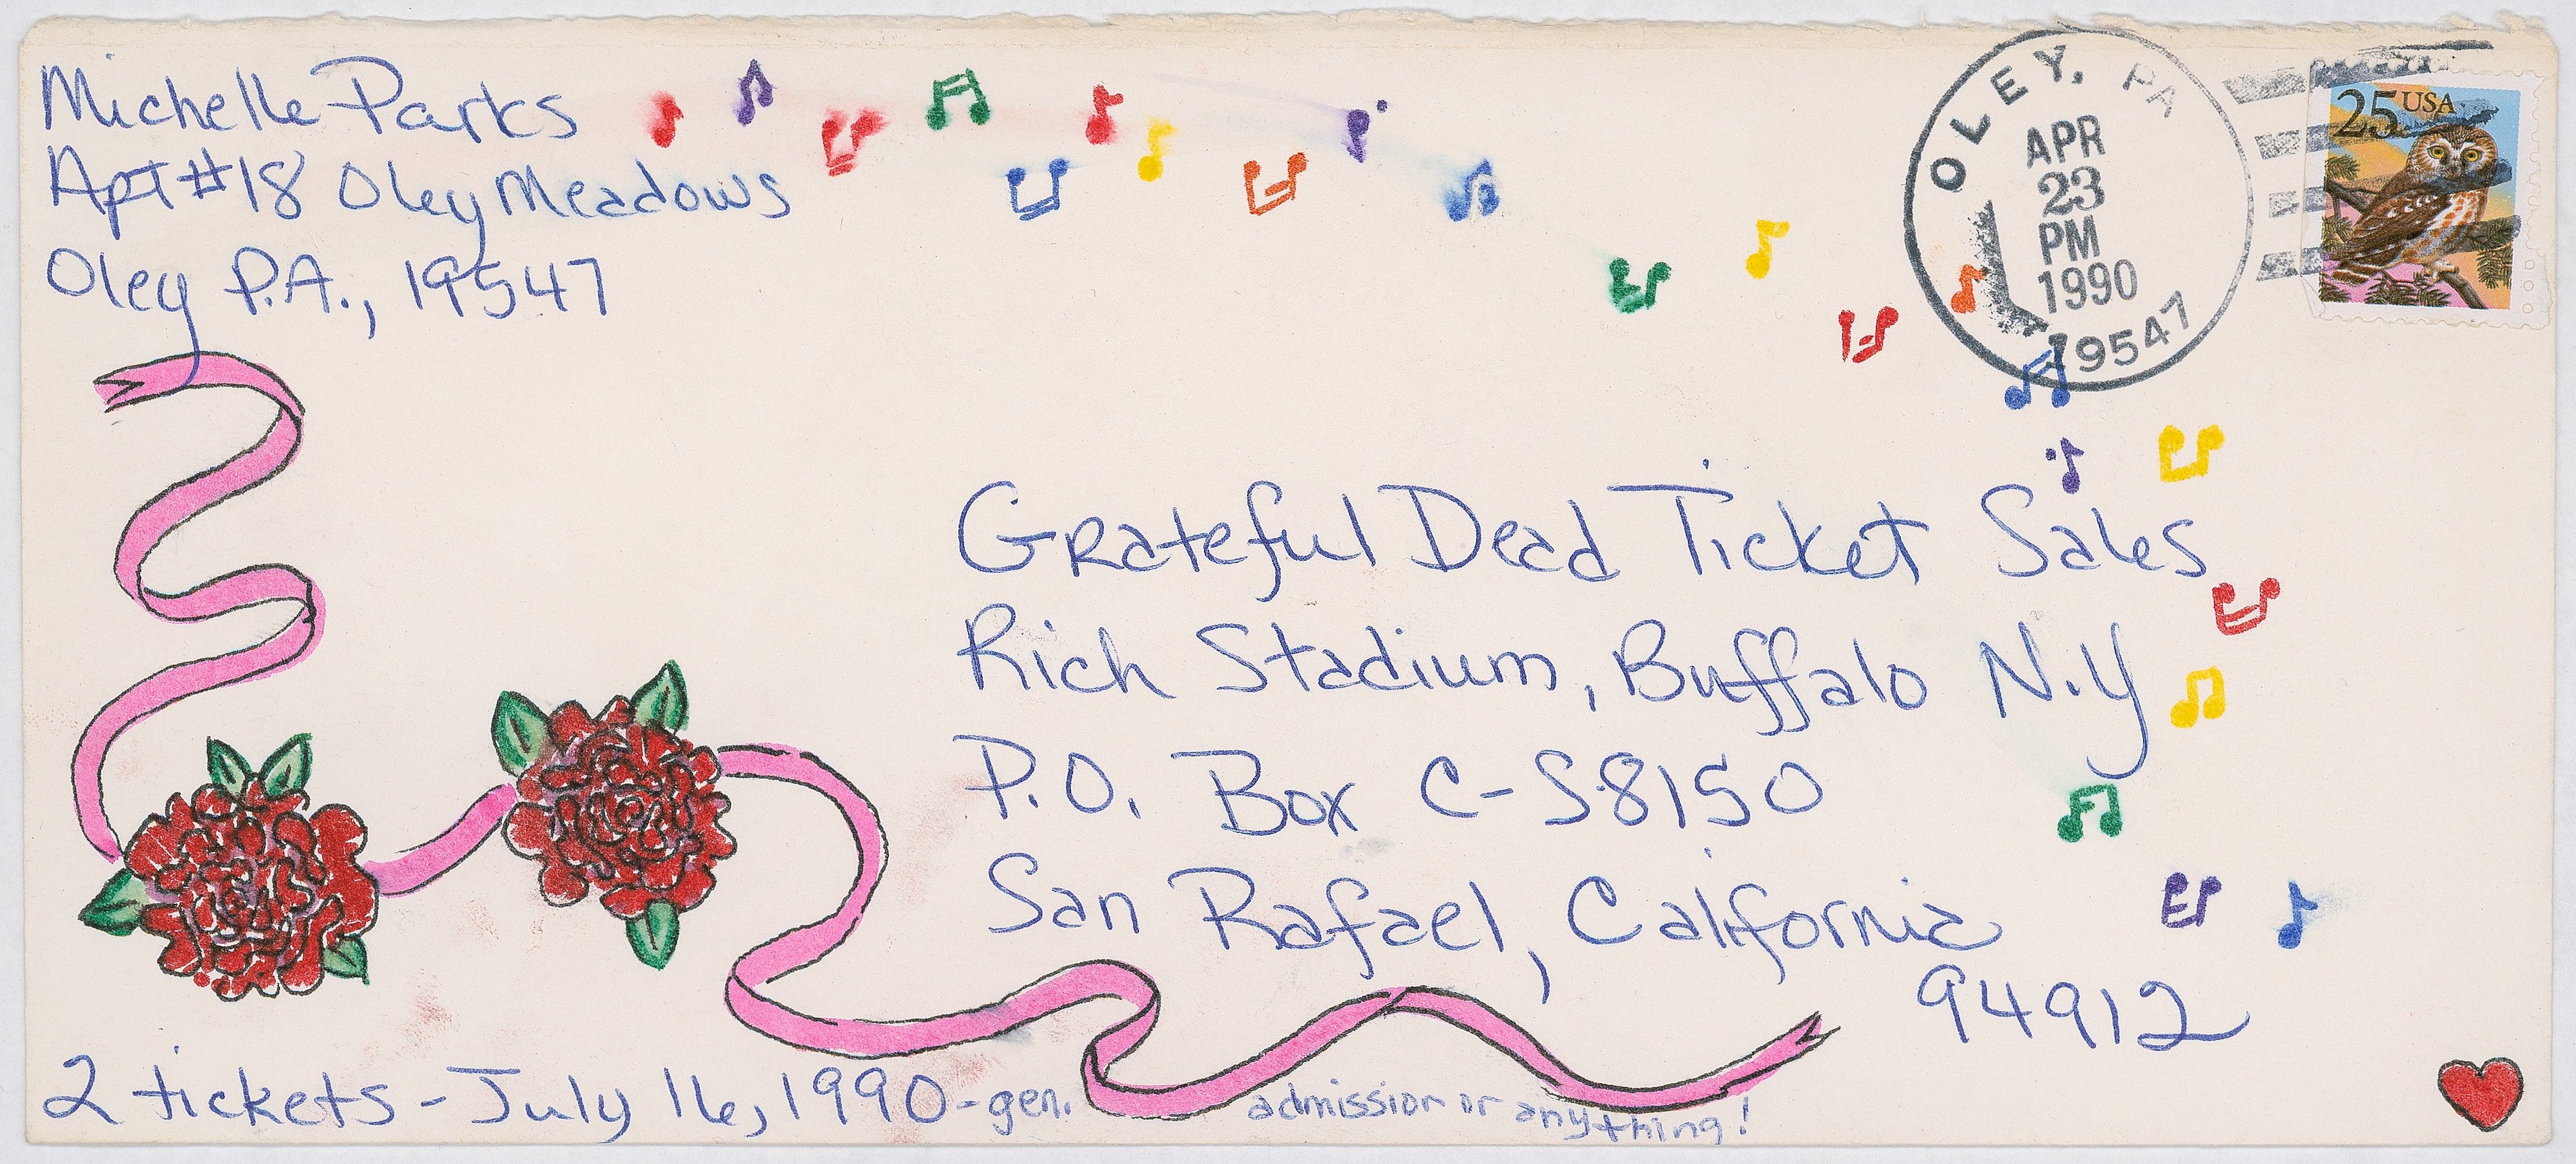 Michelle Parks
Apt #18 Oley Meadows
Oley P.A., 19547
OLEY, PA
APR
23
PM
1990
19547
25 USA
Grateful Dead Ticket Sales
Rich Stadium, Buffalo N.Y
P.O. Box C-S8150
San Rafael, California
94912
2 tickets - July 16, 1990 - gen. admission or anything!